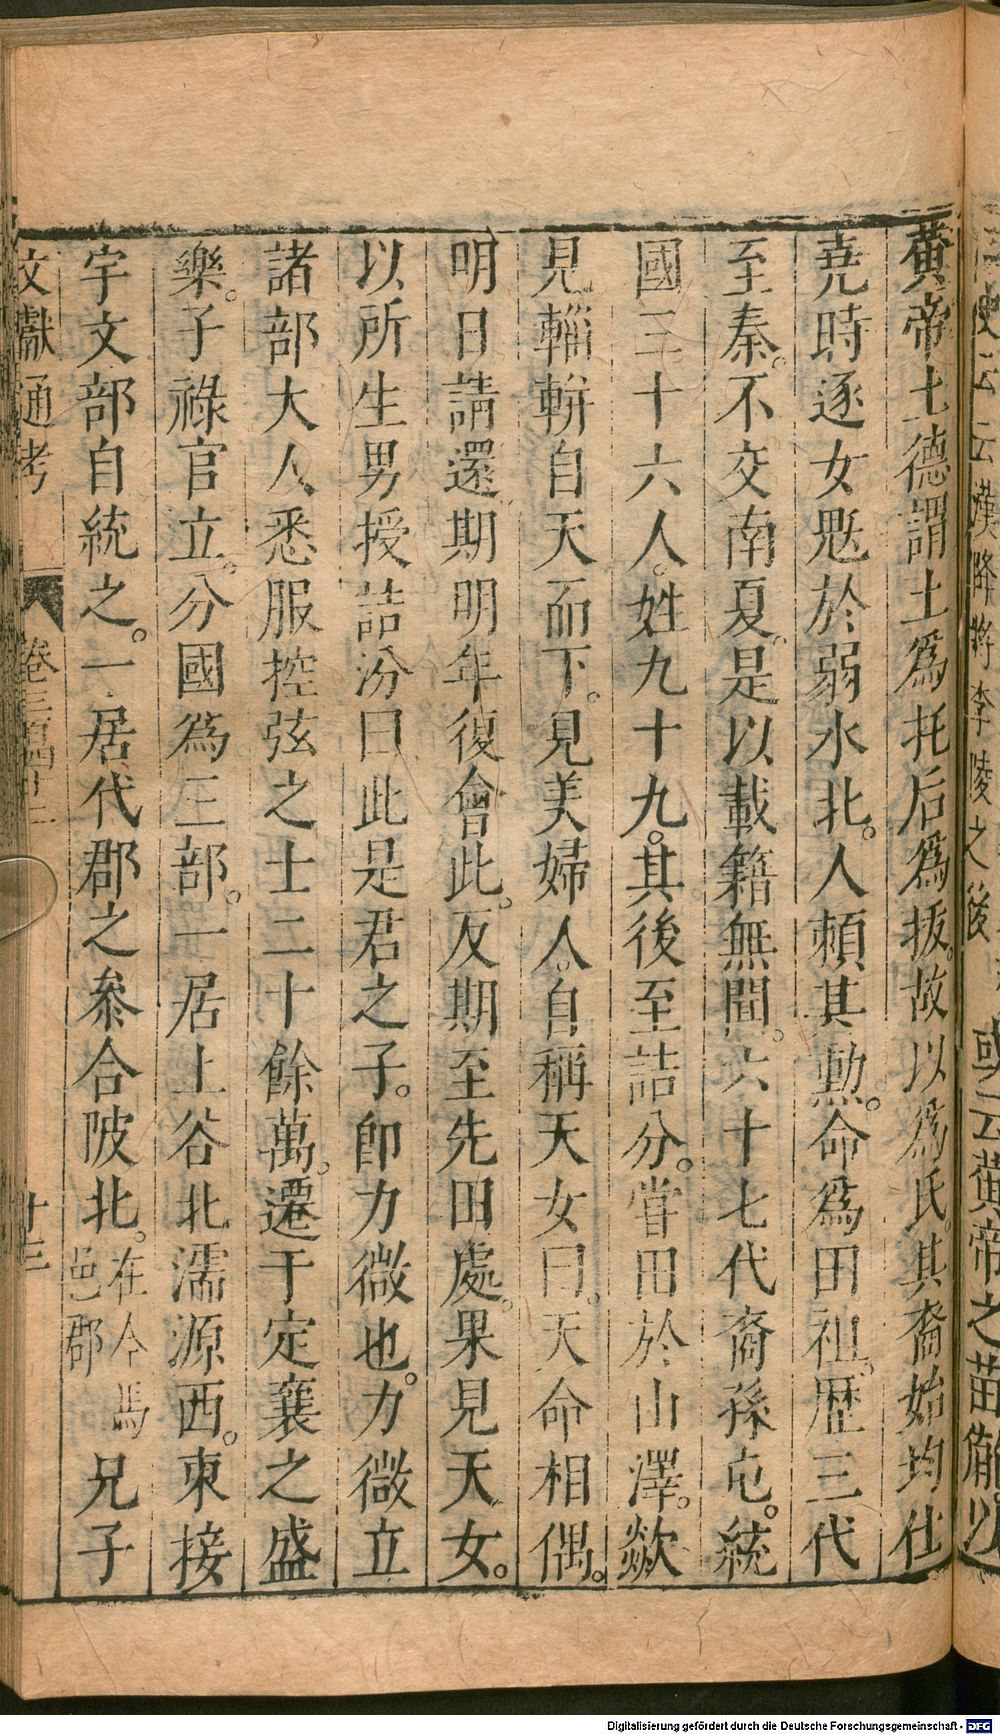 云云漢降將李陵之後
或云黃帝之苗
黃帝土德謂土為托后為拔故以為氏其裔始均仕
堯時逐女魃於弱水北人賴其勲命為田祖歴三代
至秦不交南夏是以載籍無聞六十七代裔孫屯統
國三十六人姓九十九其後至詰分嘗田於山澤歘
見輜軿自天而下見美婦人自稱天女曰天命相偶
明日請還期明年復會此及期至先田處果見天女
以所生男授詰汾曰此是君之子卽力微也力微立
諸部大人悉服控弦之士二十餘萬遷于定襄之盛
樂子祿官立分國為三部一居上谷北濡源西東接
宇文部自統之一居代郡之叅合陂北在今馬邑郡兄子
文獻通考
卷三百四十二
十三
Digitalisierung gefördert durch die Deutsche Forschungsgemeinschaft - DFG